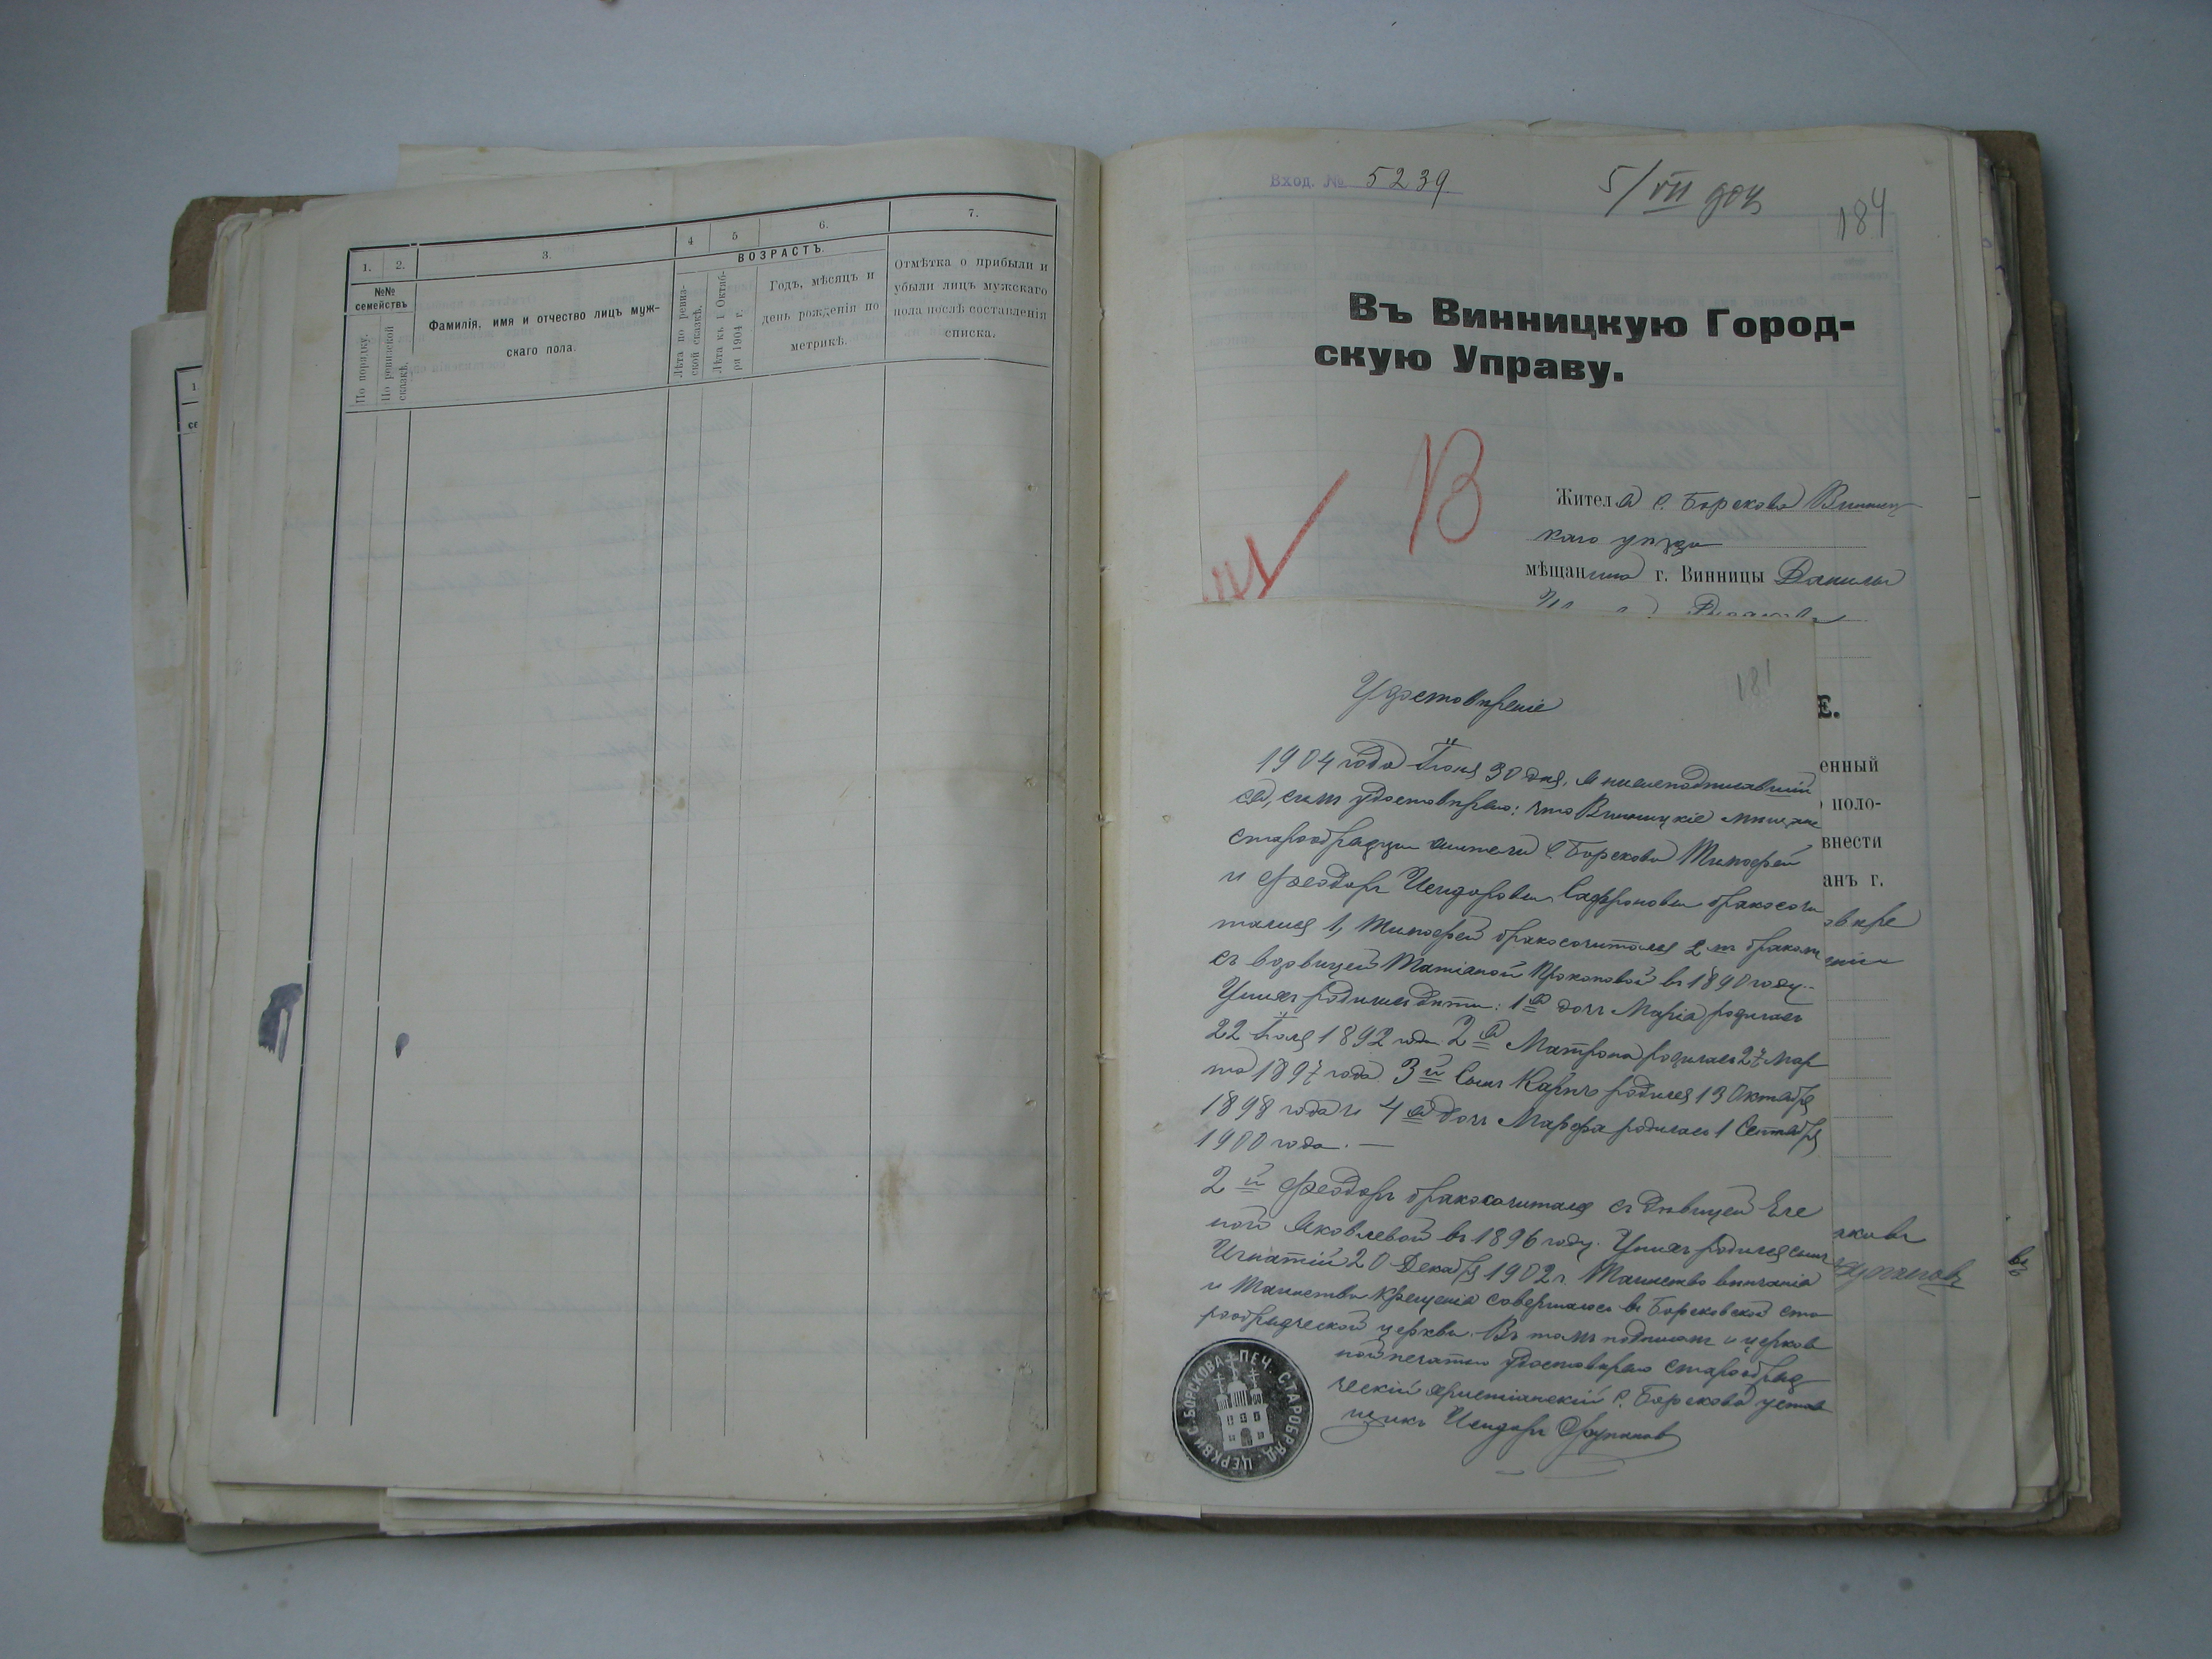 1. 2. 3. 4 5 6. 7.
№№ семействъ
По порядку.
По ревизской сказкѣ.
Фамилія, имя и отчество лицъ муж-
скаго пола.
ВОЗРАСТЪ.
Лѣта по ревиз-
ской сказкѣ.
Лѣта къ 1 Октяб-
ря 1904 г.
Годъ, мѣсяцъ и
день рожденія по
метрикѣ.
Отмѣтка о прибыли и
убыли лицъ мужскаго
пола послѣ составленія
списка.
Вход. № 5239
5/VII
184
Въ Винницкую Город-
скую Управу.
В
Жителя с. Борскова Винниц
каго уѣзда
мѣщанина г. Винницы Данилы
Е.
енный
поло-
внести
анъ г.
181
Удостовѣреніе
1904 года Іюня 30 дня, я нижеподписавшій
ся, симъ удостовѣряю: что Винницкіе мѣщане
старообрядцы жители с. Борскова Тимофей
и Феодоръ Исидоровы Сафроновы бракосоче
тались 1, Тимофей бракосочитался 2мъ бракомъ
съ вдовицей Татіаной Прокоповой въ 1890 году.
У нихъ родились дѣти: 1я дочь Марія родилась
22 Іюля 1892 года 2я Матрона родилась 27 Мар
та 1897 года 3й Сынъ Карпъ родился 13 Октября
1898 года и 4я дочь Марфа родилась 1 Сентября
1900 года. —
2й Феодоръ бракосочитался съ дѣвицей Еле
ной Яковлевой въ 1896 году. У нихъ родился сынъ
Игнатій 20 Декабря 1902 г. Таинство вѣнчанія
и Таинства Крещенія совершалось въ Борсковской ста
рообрядческой церкви. Въ томъ подписомъ и церков
ной печатью удостовѣряю старообряд
ческій христіанскій с. Борскова устав
щикъ Исидоръ
ПЕЧ. СТАРОБРЯД. ЦЕРКВИ С. БОРСКОВА